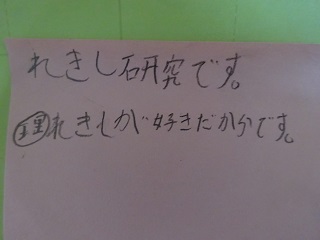 れきし研究です。
理れきしが好きだからです。